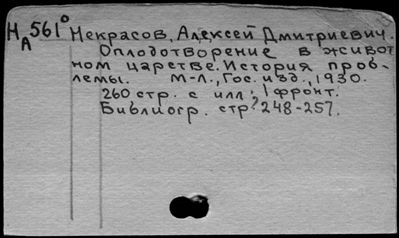 НА561° Некрасов, Алексей Дмитриевич.
Оплодотворение в живот
ном царстве. История проб-
лемы. М-Л., Гос. изд., 1930.
260 стр. с илл; 1 фронт.
Библиогр. стр. 248-257.